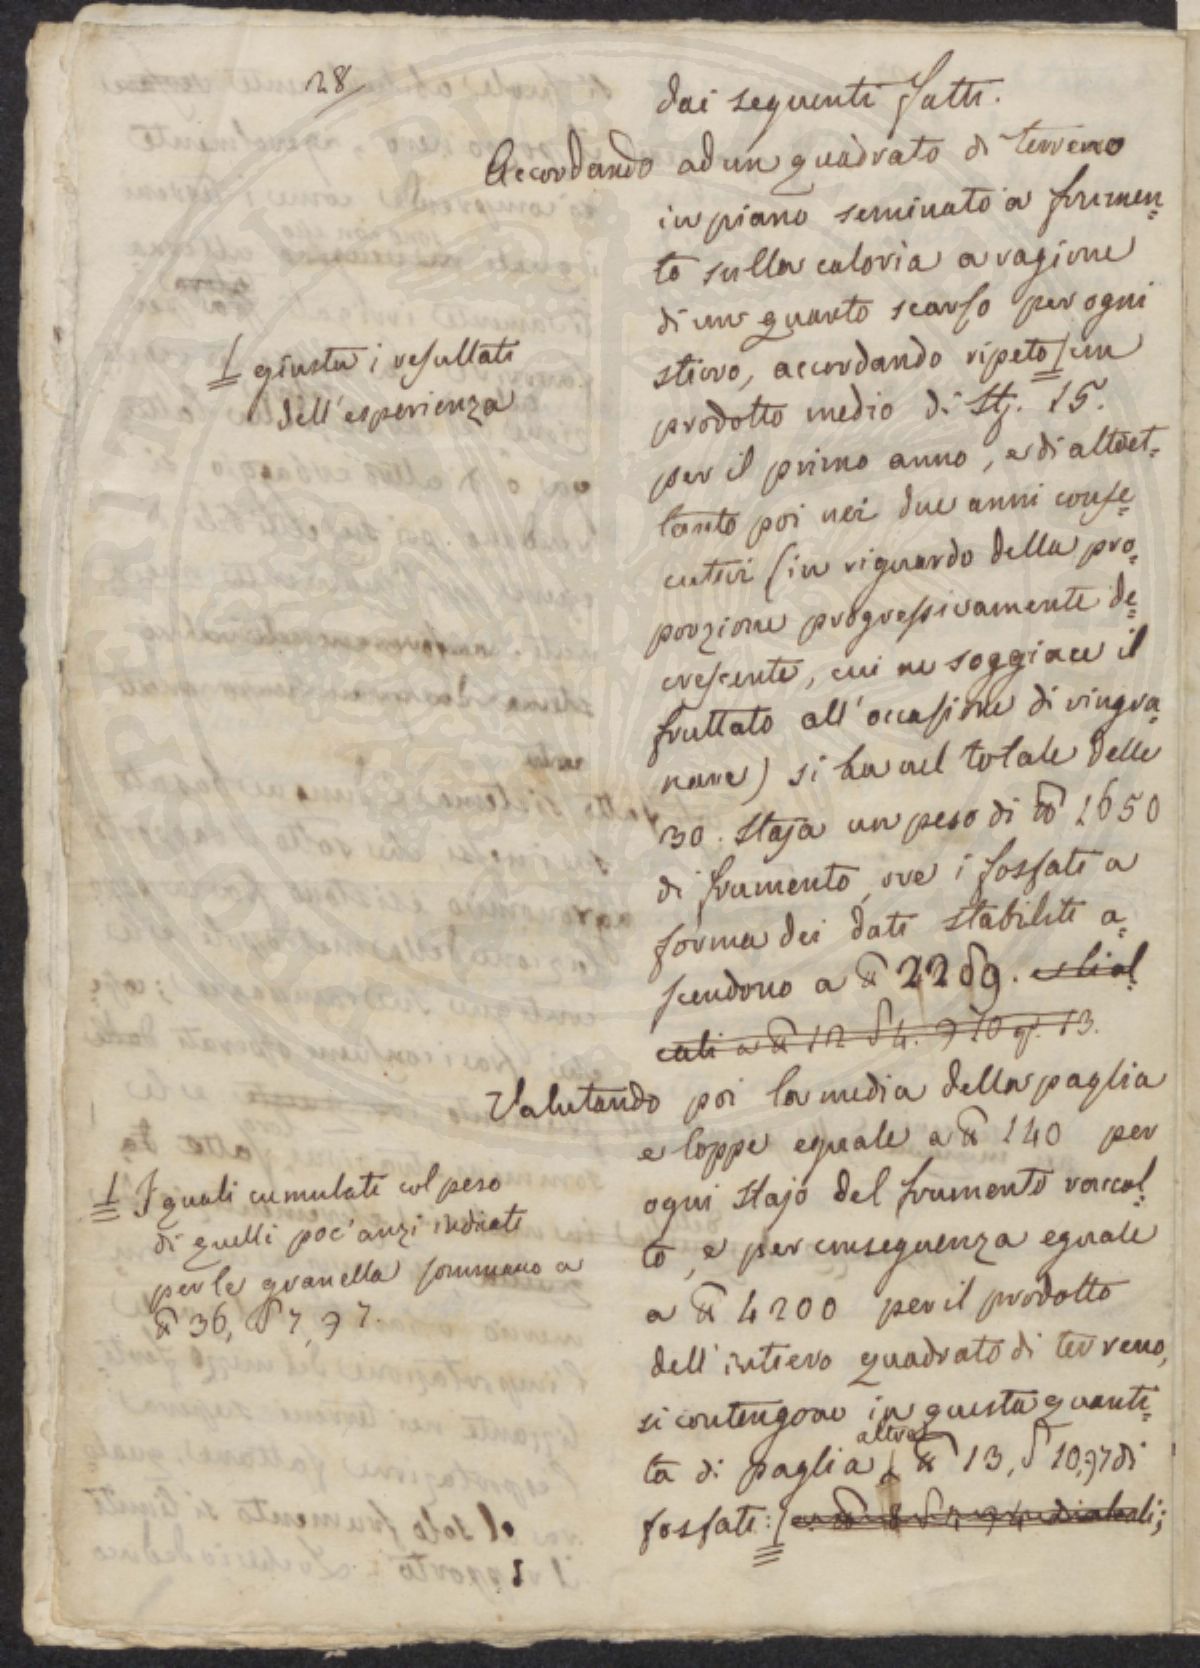 28
dai seguenti fatti.
Accordando ad un quadrato di terreno
in piano seminato a frumen=
to sulla caloria a ragione
di un quarto scarso per ogni
stioro, accordando ripeto / un
/ giusta i resultati
dell'esperienza
prodotto medio di Stj. 15.
per il primo anno, e di altret=
tanto poi nei due anni conse=
cutivi (in riguardo della pro=
porzione progressivamente de=
crescente, cui ne soggiace il
fruttato all'occasione di ringra=
nare) si ha nel totale delle
30. Staja un peso di ℔ 1650
di frumento, ove i fosfati a
forma dei dati stabiliti a=
scendono a ℔ 22 δ 9. e li al=
cali a ℔ 12 δ 4. 10 gr. 13.
Valutando poi la media della paglia
e loppe eguale a ℔ 140 per
ogni Stajo del frumento raccol=
to, e per conseguenza eguale
a ℔ 4200 per il prodotto
dell'intiero quadrato di terreno,
si contengono in questa quanti=
tà di paglia altre ℔ 13, δ 10, 7 di
fosfati: /
/ I quali cumulati col peso
di quelli poc'anzi indicati
per le granella sommano a
℔ 36, δ 7, 7.